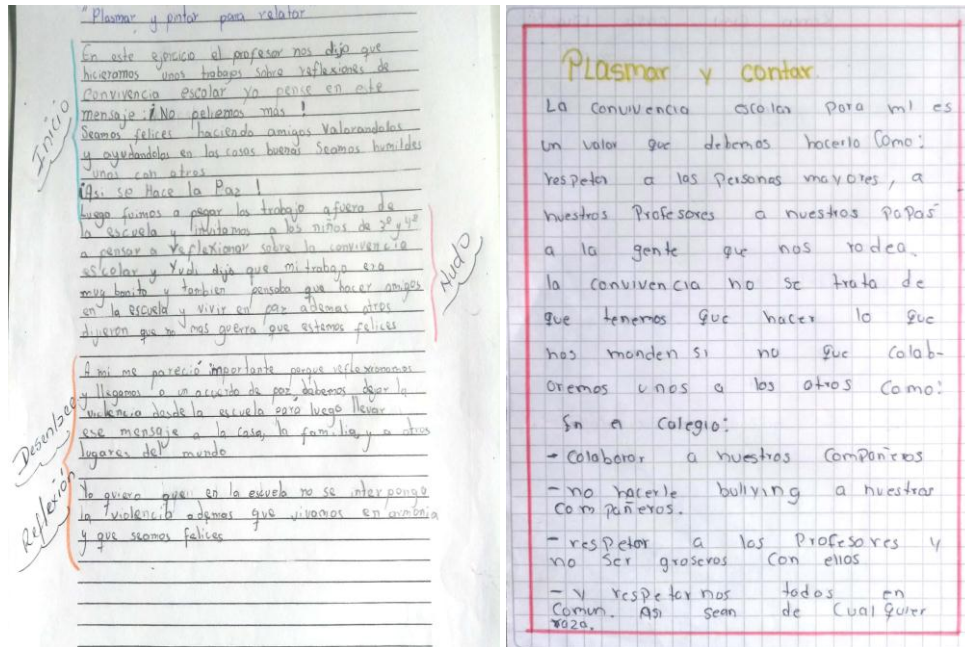 "Plasmar y pintar para relatar
En este ejercicio el profesor nos dijo que
hicieramos unos trabajos sobre reflexiones de
Convivencia escolar yo pense en este
mensaje: ¡No peliemos mas!
Seamos felices haciendo amigos Valorandolos
y ayudandolos en las cosas buenas Seamos humildes
unos con otros
¡Asi se Hace la Paz!
Luego fuimos a pegar los trabajo afuera de
la escuela y invitamos a los niños de 3º y 4º
a pensar a reflexionar sobre la convivencia
escolar y Yudi dijo que mi trabajo era
muy bonito y tambien pensaba que hacer amigos
en la escuela y vivir en paz ademas otros
dijeron que no mas guerra que estemos felices
A mi me pareció importante porque reflexionamos
y llegamos a un acuerdo de paz, debemos dejar la
violencia desde la escuela para luego llevar
ese mensaje a la casa, la familia y a otros
lugares del mundo
Yo quiero que en la escuela no se interponga
la violencia ademas que vivamos en armonia
y que seamos felices
Inicio
Nudo
Desenlace
Reflexión
Plasmar y contar
La convivencia escolar para mi es
un valor que debemos hacerlo Como:
respetar a las Personas mayores, a
nuestros Profesores a nuestros papas
a la gente que nos rodea.
la convivencia no se trata de
que tenemos que hacer lo que
nos manden si no que colab-
oremos unos a los otros Como:
En el Colegio:
- Colaborar a nuestros Compañeros
- no hacerle bullying a nuestros
Compañeros.
- respetar a los Profesores y
no ser groseros con ellos
- y respetarnos todos en
Comun. Asi sean de cualquier
raza.